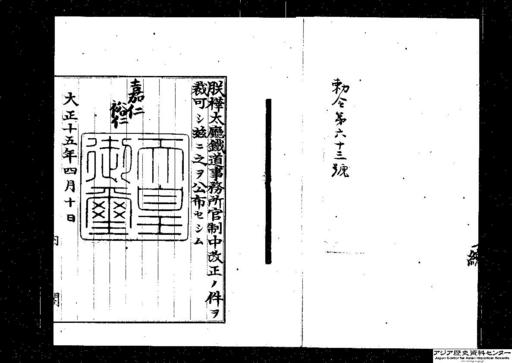 勅令第六十三號
朕樺太廳鐵道事務所官制中改正ノ件ヲ
裁可シ茲ニ之ヲ公布セシム
嘉仁
裕仁
天皇御璽
大正十五年四月十日
内閣
アジア歴史資料センター
Japan Center for Asian Historical Records